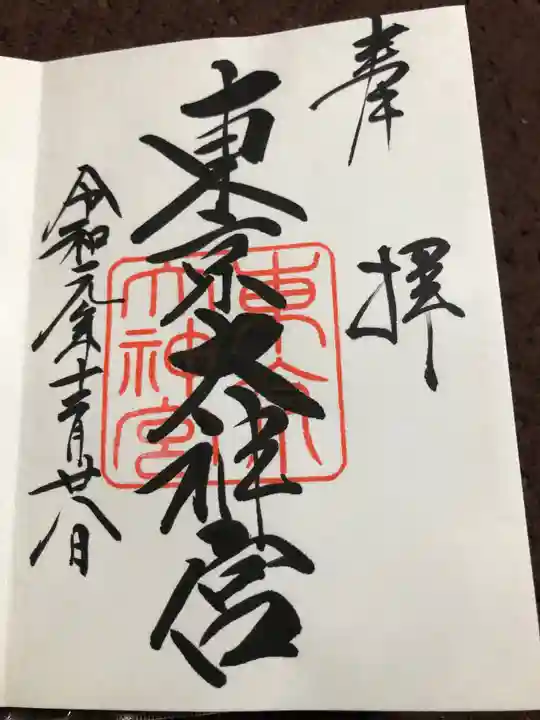 奉拝
東京大神宮
東京大神宮
令和元年十二月廿八日